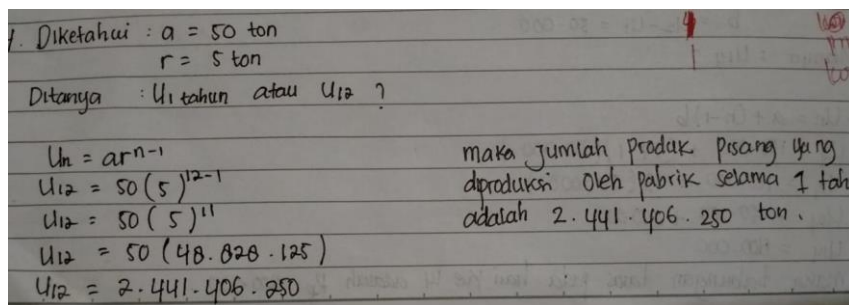 1. Diketahui : a = 50 ton
r = 5 ton
Ditanya : U1 tahun atau U12 ?
Un = ar^n-1
U12 = 50 (5)^12-1
U12 = 50 (5)^11
U12 = 50 (48.828.125)
U12 = 2.441.406.250
maka jumlah produk pisang yang
diproduksi oleh pabrik selama 1 tah
adalah 2.441.406.250 ton.